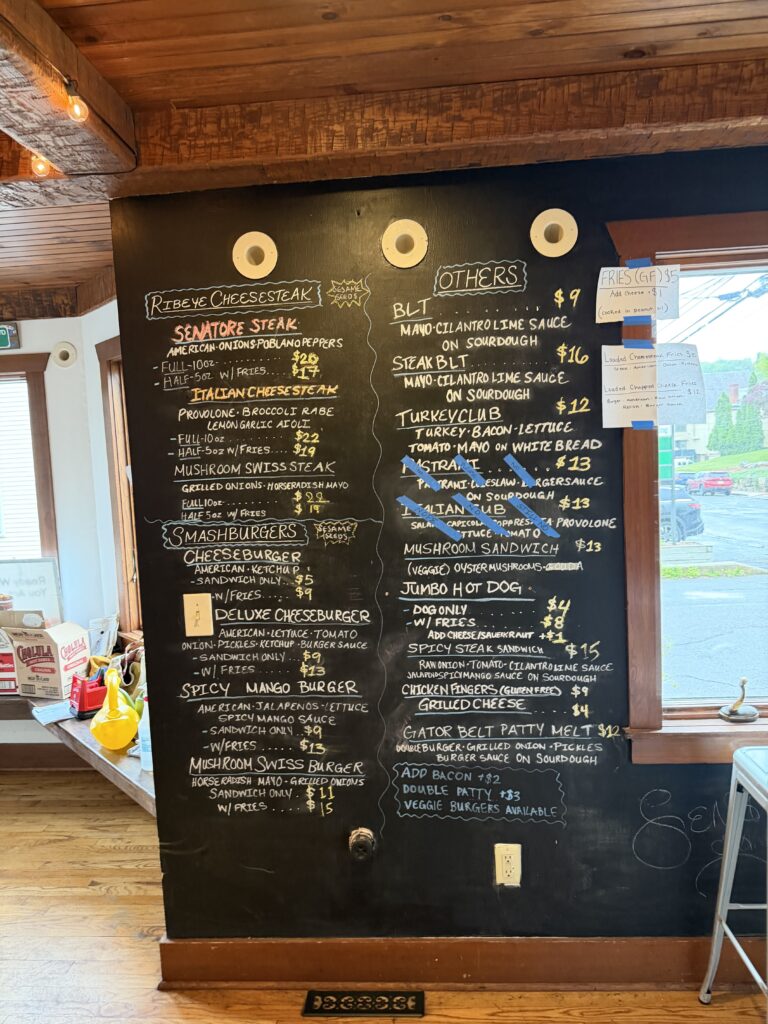 RIBEYE CHEESESTEAK
SESAME SEEDS
SENATORE STEAK
AMERICAN·ONIONS·POBLANO PEPPERS
-FULL-10oz ........ $20
-HALF-5oz W/FRIES.... $17
ITALIAN CHEESESTEAK
PROVOLONE·BROCCOLI RABE
LEMON GARLIC AIOLI
-FULL-10oz ........ $22
-HALF-5oz W/FRIES.... $19
MUSHROOM SWISS STEAK
GRILLED ONIONS·HORSERADISH MAYO
FULL 10oz ........ $22
HALF 5oz W/FRIES $19
SMASHBURGERS
SESAME SEEDS
CHEESEBURGER
AMERICAN·KETCHUP
-SANDWICH ONLY... $5
-W/FRIES ........ $9
DELUXE CHEESEBURGER
AMERICAN·LETTUCE·TOMATO
ONION·PICKLES·KETCHUP·BURGER SAUCE
-SANDWICH ONLY... $9
-W/ FRIES ...... $13
SPICY MANGO BURGER
AMERICAN·JALAPENOS·LETTUCE
SPICY MANGO SAUCE
-SANDWICH ONLY.. $9
-W/FRIES ...... $13
MUSHROOM SWISS BURGER
HORSERADISH MAYO·GRILLED ONIONS
SANDWICH ONLY. $11
W/FRIES .... $15
OTHERS
BLT ........ $9
MAYO·CILANTRO LIME SAUCE
ON SOURDOUGH
STEAK BLT ........ $16
MAYO·CILANTRO LIME SAUCE
ON SOURDOUGH
TURKEY CLUB ........ $12
TURKEY·BACON·LETTUCE
TOMATO·MAYO ON WHITE BREAD
PASTRAMI ........ $13
PASTRAMI·COLESLAW·BURGER SAUCE
ON SOURDOUGH
ITALIAN SUB ........ $13
SALAMI CAPICOLA SOPPRESSATA PROVOLONE
LETTUCE·TOMATO
MUSHROOM SANDWICH $13
(VEGGIE) OYSTER MUSHROOMS·GOUDA
JUMBO HOT DOG
-DOG ONLY ........ $4
-W/ FRIES ........ $8
ADD CHEESE/SAUERKRAUT +$1
SPICY STEAK SANDWICH $15
RAW ONION·TOMATO·CILANTRO LIME SAUCE
JALAPEÑO SPICY MANGO SAUCE ON SOURDOUGH
CHICKEN FINGERS (GLUTEN FREE) $9
GRILLED CHEESE ..... $4
GATOR BELT PATTY MELT $12
DOUBLE BURGER·GRILLED ONION·PICKLES
BURGER SAUCE ON SOURDOUGH
ADD BACON +$2
DOUBLE PATTY +$3
VEGGIE BURGERS AVAILABLE
FRIES (GF) $5
Add cheese +$1
(cooked in peanut oil)
Loaded Cheesesteak Fries
Loaded Chopped Cheese Fries
$12
CHOLULA
CHOLULA